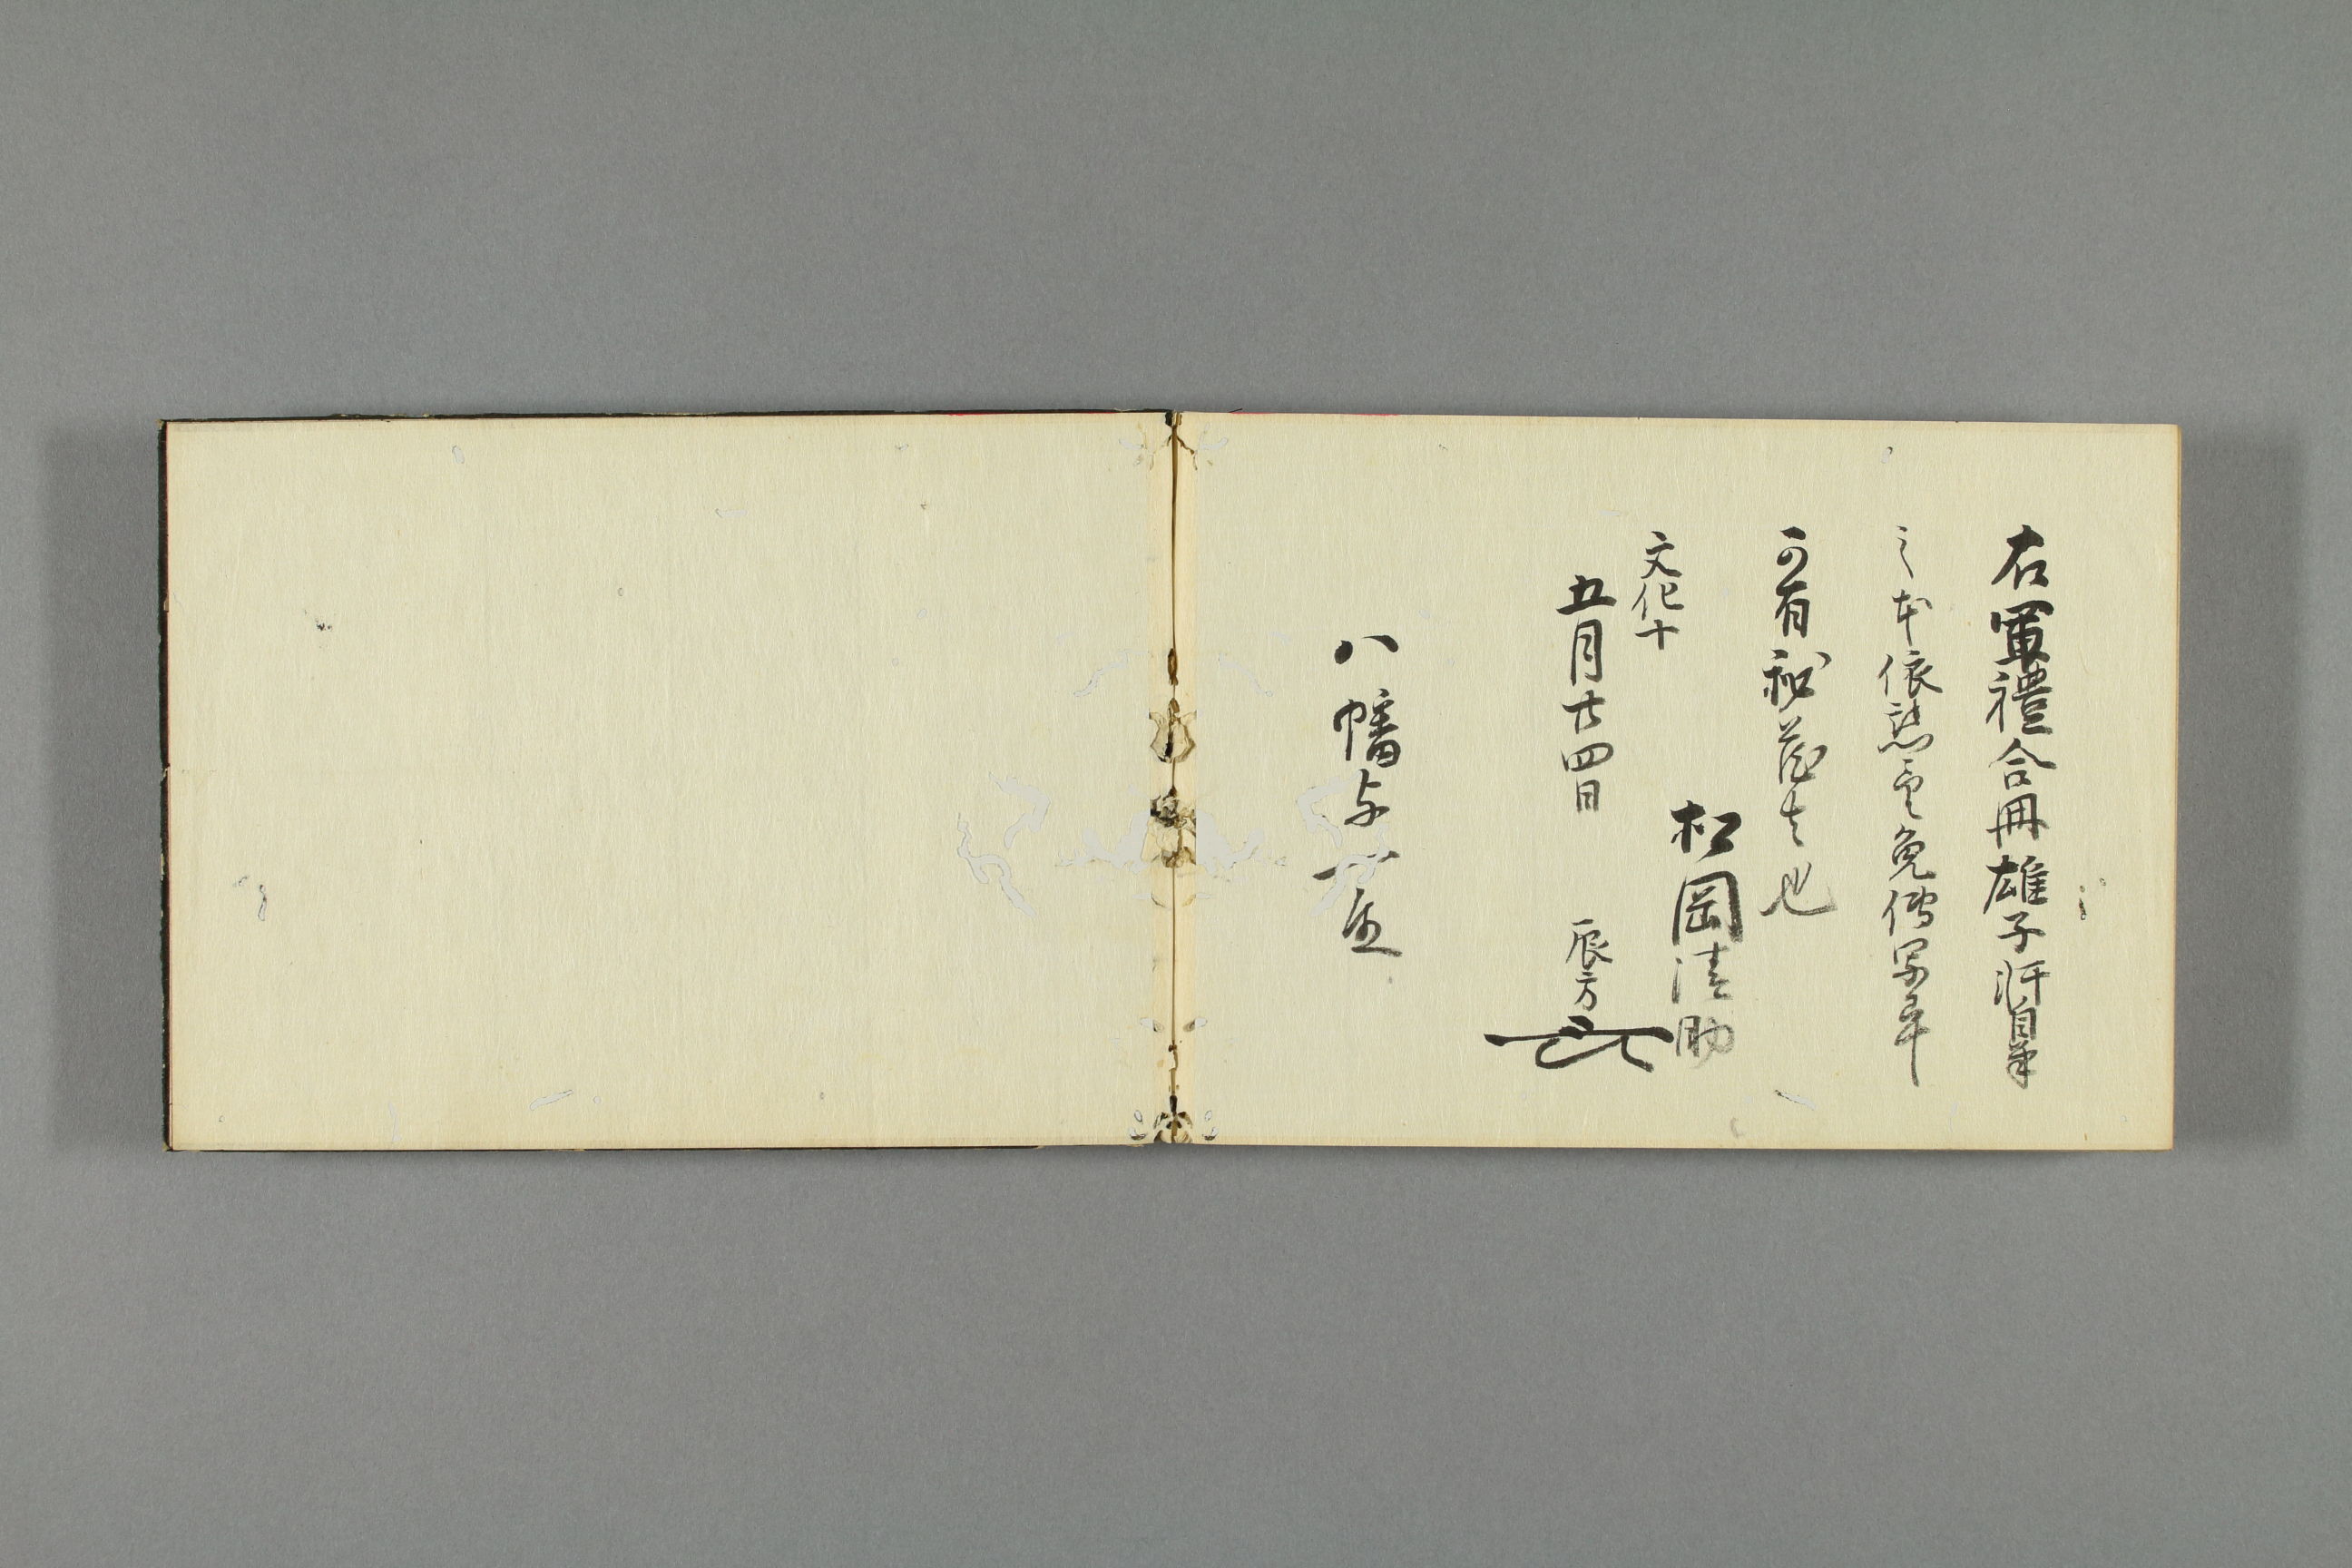 右軍禮合冊雄子渊自筆
之本依懇望免傳写畢
可有秘蔵者也
松岡清助
文化十
五月廿四日
辰方
八幡与一